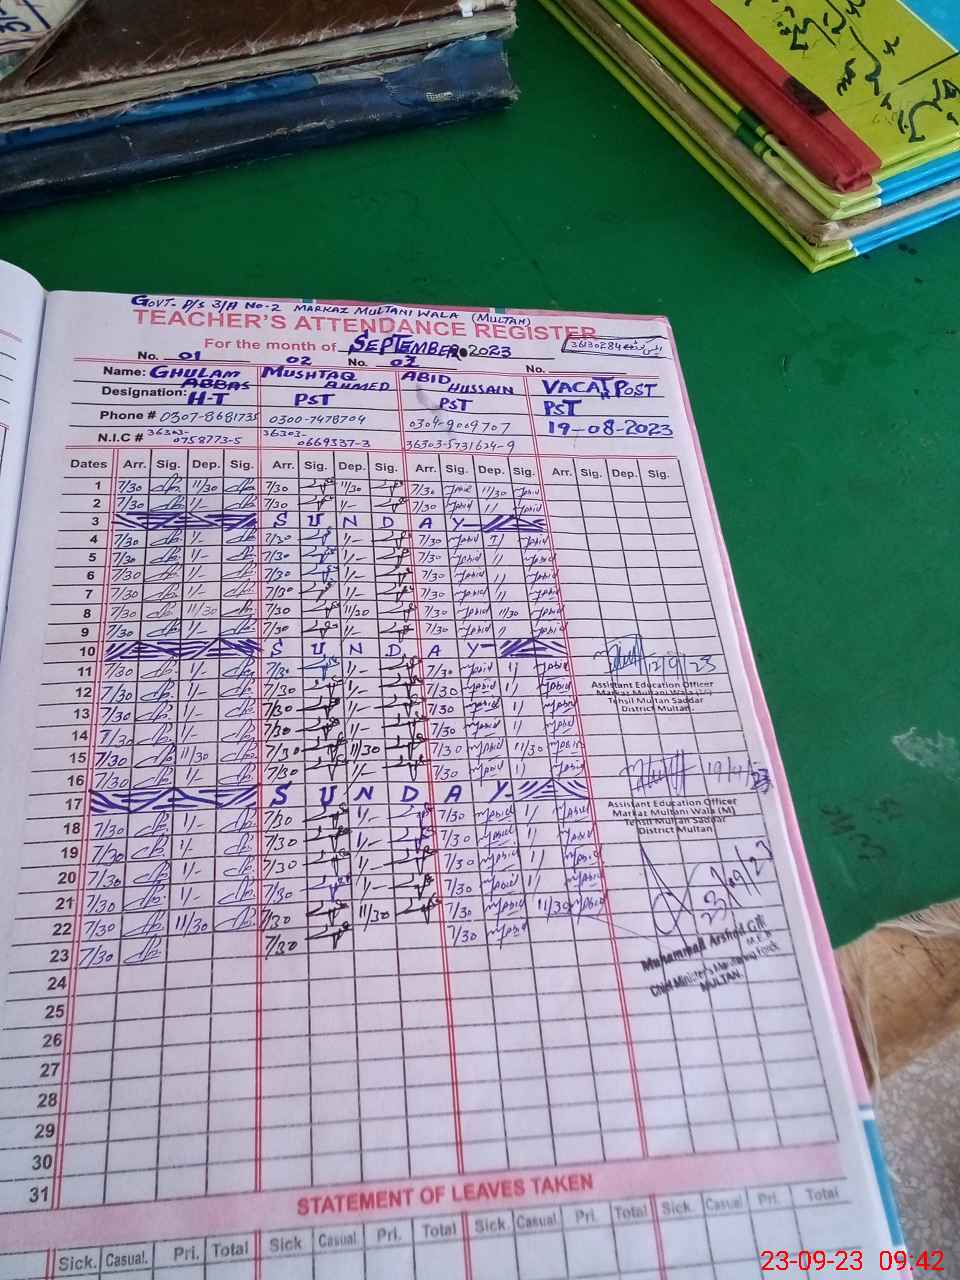 GOVT- P/S 3/A NO-2 MARKAZ MULTANI WALA (MULTAN)
TEACHER'S ATTENDANCE REGISTER
For the month of SEPTEMBER 2023
No. 01 02 No. 03 No.
Name: GHULAM ABBAS MUSHTAQ AHMED ABID HUSSAIN VACANT POST
Designation: H-T PST PST PST
Phone # 0307-8681735 0300-7478704 0304-909707 19-08-2023
N.I.C # 36303-0758773-5 36303-0669337-3 36303-5731624-9
Dates Arr. Sig. Dep. Sig. Arr. Sig. Dep. Sig. Arr. Sig. Dep. Sig. Arr. Sig. Dep. Sig.
1 7/30 11/30 7/30 11/30 7/30 Abid 11/30 Abid
2 7/30 1/- 7/30 1/- 7/30 Abid 11 Abid
3 SUNDAY
4 7/30 1/- 7/30 1/- 7/30 Abid 11 Abid
5 7/30 1/- 7/30 1/- 7/30 Abid 11 Abid
6 7/30 1/- 7/30 1/- 7/30 Abid 11 Abid
7 7/30 1/- 7/30 1/- 7/30 Abid 11 Abid
8 7/30 11/30 7/30 11/30 7/30 Abid 11/30 Abid
9 7/30 1/- 7/30 1/- 7/30 Abid 11 Abid
10 SUNDAY
11 7/30 1/- 7/30 1/- 7/30 Abid 11 Abid
12 7/30 1/- 7/30 1/- 7/30 Abid 11 Abid
13 7/30 1/- 7/30 1/- 7/30 Abid 11 Abid
14 7/30 1/- 7/30 1/- 7/30 Abid 11 Abid
15 7/30 11/30 7/30 11/30 7/30 Abid 11/30 Abid
16 7/30 1/- 7/30 1/- 7/30 Abid 11 Abid
17 SUNDAY
18 7/30 1/- 7/30 1/- 7/30 Abid 11 Abid
19 7/30 1/- 7/30 1/- 7/30 Abid 11 Abid
20 7/30 1/- 7/30 1/- 7/30 Abid 11 Abid
21 7/30 1/- 7/30 1/- 7/30 Abid 11 Abid
22 7/30 11/30 7/30 11/30 7/30 Abid 11/30 Abid
23 7/30 7/30 7/30 Abid
24
25
26
27
28
29
30
31
12/9/23
Assistant Education Officer
Markaz Multani Wala (M)
Tehsil Multan Saddar
District Multan.
Assistant Education Officer
Markaz Multani Wala (M)
Tehsil Multan Saddar
District Multan
Muhammad Arshad
Chief Minister's Monitoring Force
MULTAN
STATEMENT OF LEAVES TAKEN
Sick. Casual. Pri. Total Sick Casual Pri. Total Sick. Casual Pri. Total Sick. Casual Pri. Total
23-09-23 09:42